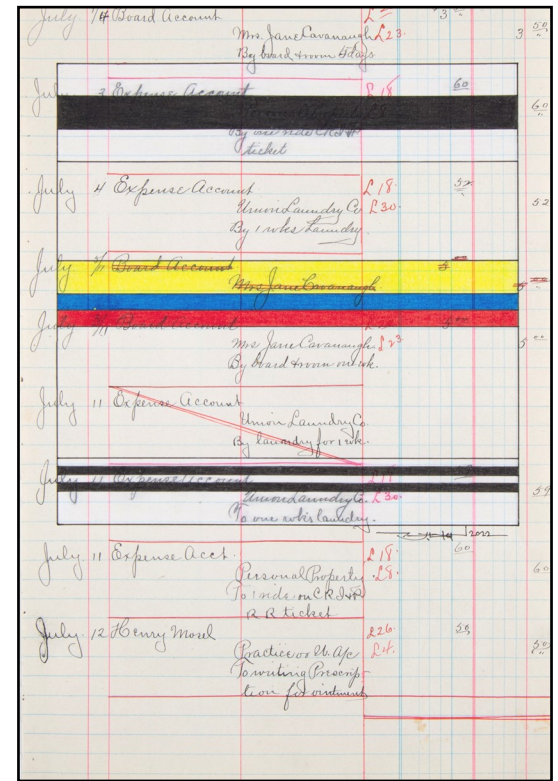 July 1/4 Board Account £ 3
Mrs. Jane Cavanaugh £23. 3 50
By board & room 5 days
July 3 Expense Account £18 60
60
By one ride
ticket
July 4 Expense Account £18. 52
Union Laundry Co £30. 52
By 1 wks Laundry
July Board Account 5
Mrs Jane Cavanaugh 5
July Board Account 5
Mrs Jane Cavanaugh. £23. 5
By board & room one wk.
July 11 Expense Account
Union Laundry Co.
By laundry for 1 wk.
July 11 Expense Account
Union Laundry Co. £30. 59
To one wks laundry.
2022
July 11 Expense Acct. £18. 60
Personal Property £8. 60
To 1 ride on C R I & P
R R ticket
July. 12 Henry Mosel £26. 50
Practice or W. A/c £4. 50
To writing Prescrip-
tion for ointment